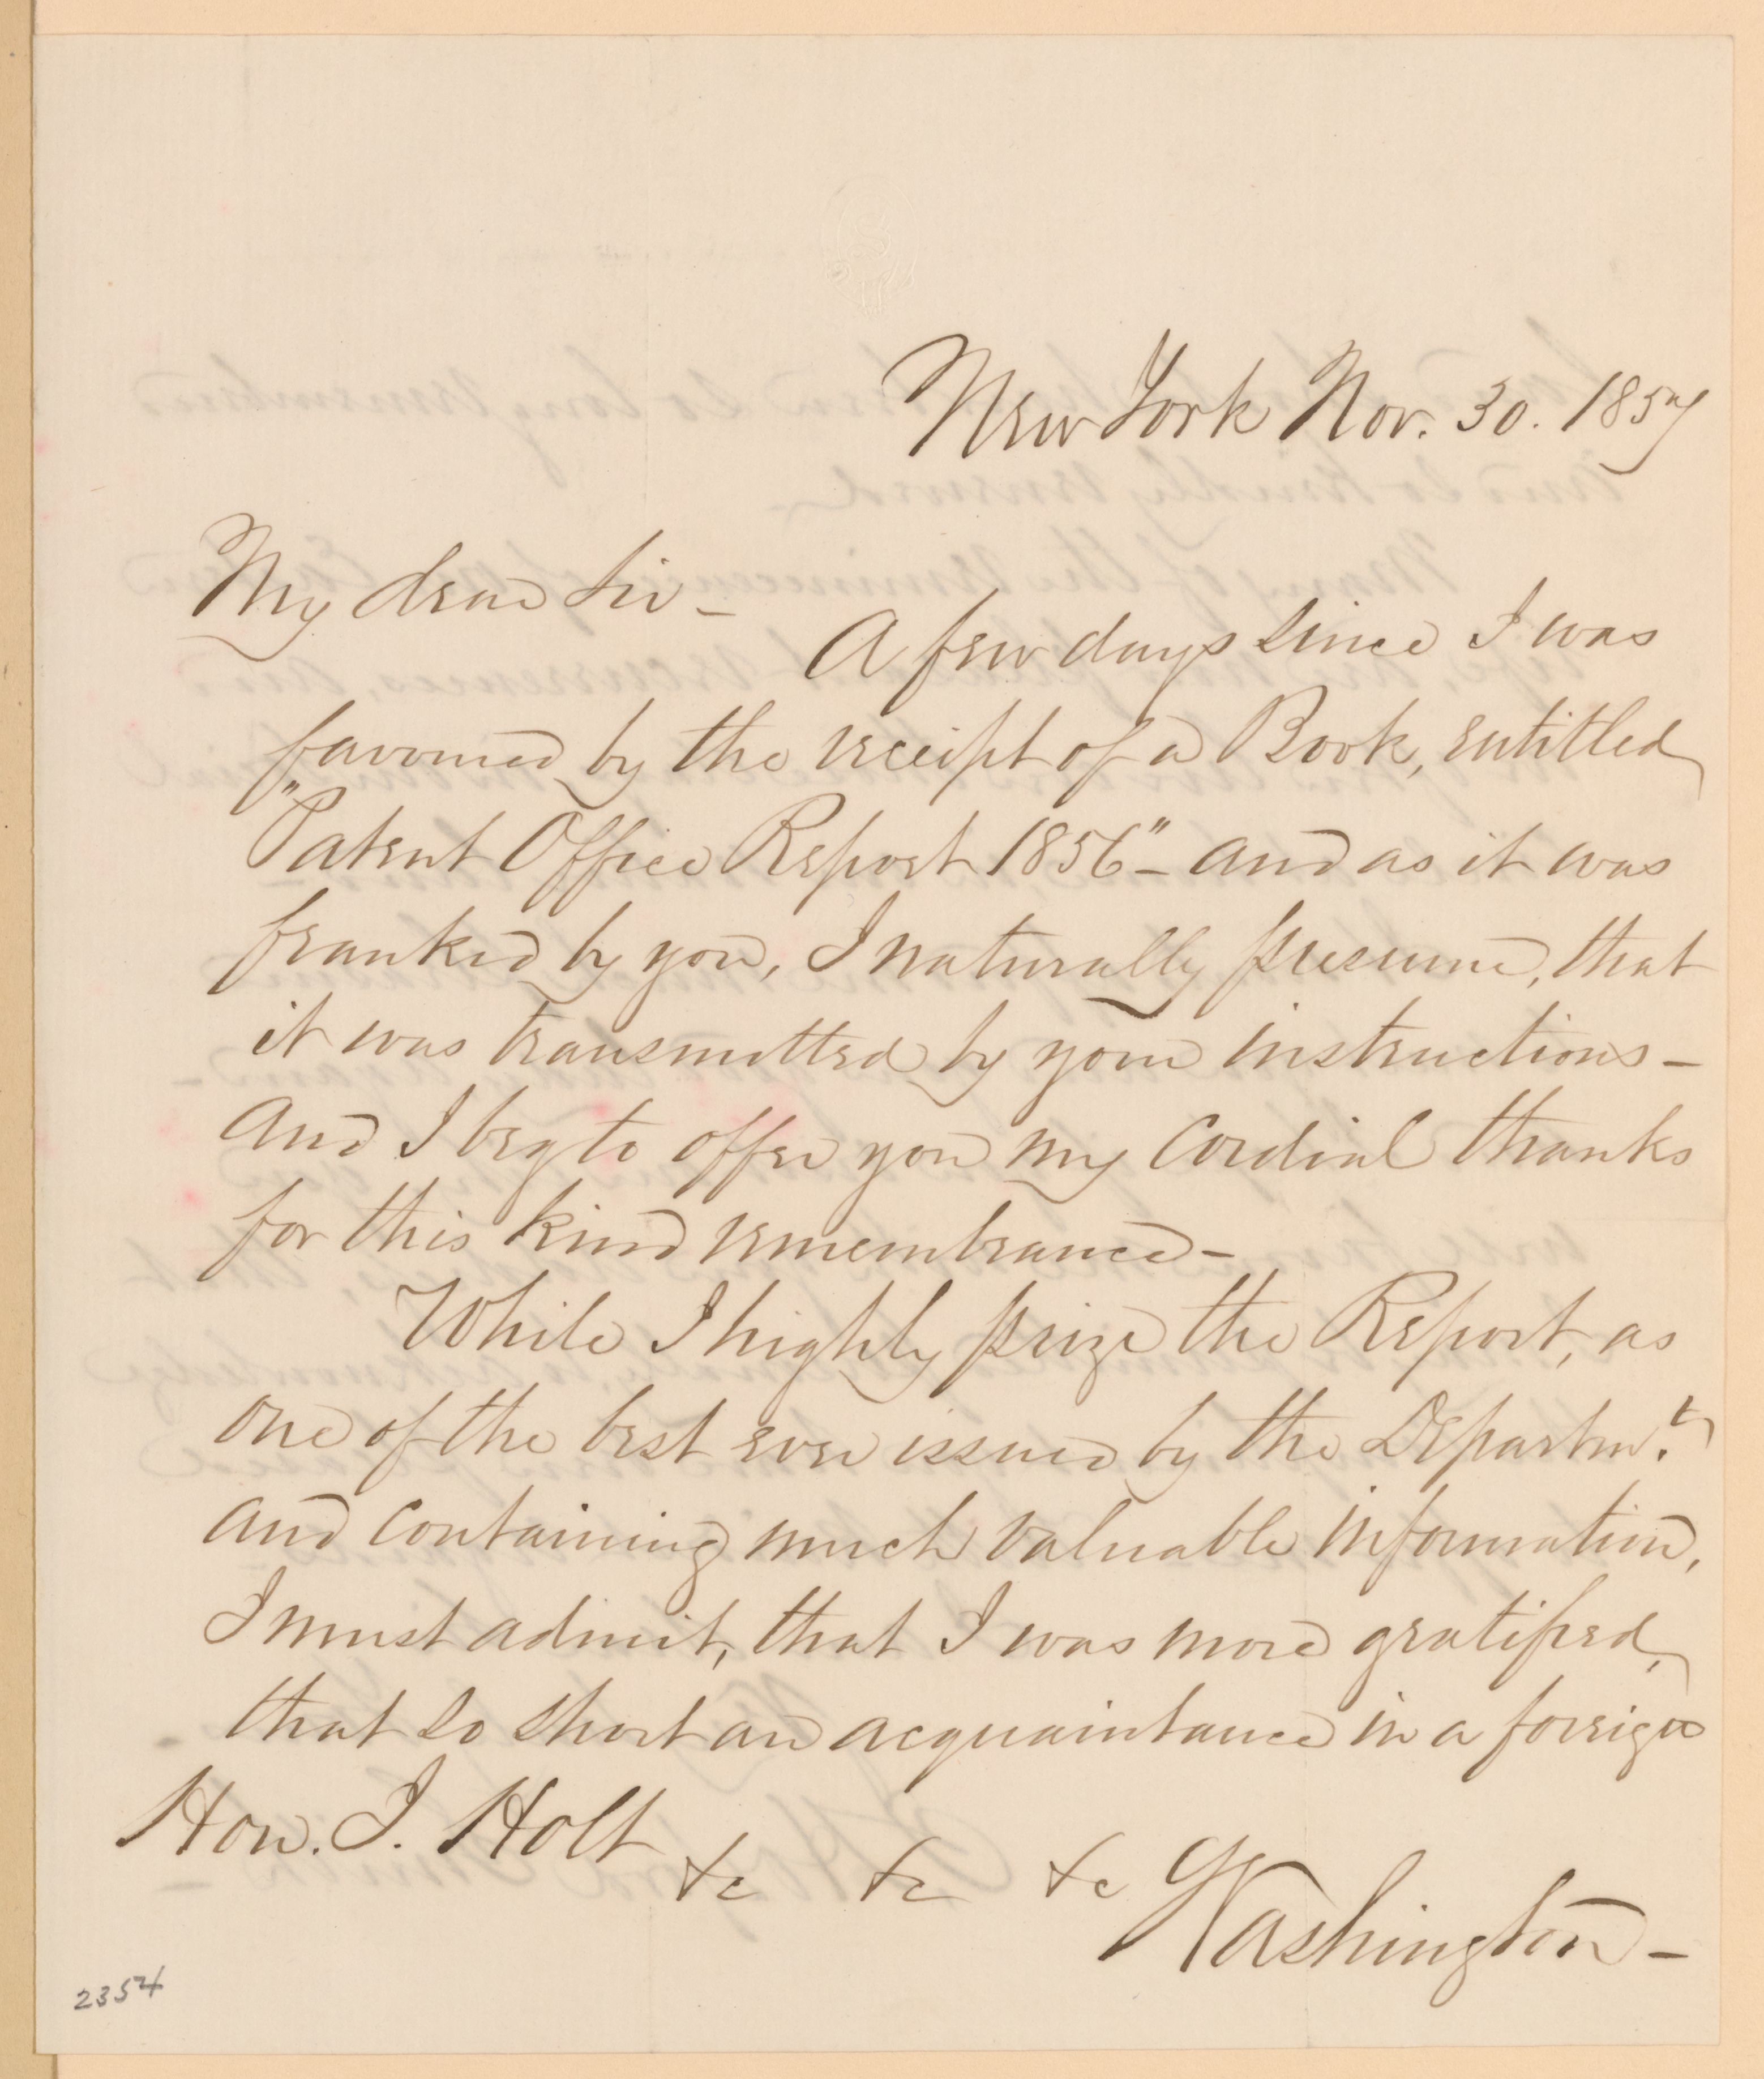 New York Nov. 30. 1857
My dear Sir –
A few days since I was
favoured by the receipt of a Book, entitled
"Patent Office Report 1856" – and as it was
franked by you, I naturally presume, that
it was transmitted by your instructions –
and I beg to offer you my cordial thanks
for this kind remembrance –
While I highly prize the Report, as
one of the best ever issued by the Departmt.
and containing much valuable information,
I must admit, that I was more gratified,
that so short an acquaintance in a foreign
Hon. J. Holt
&c &c &c Washington –
2354